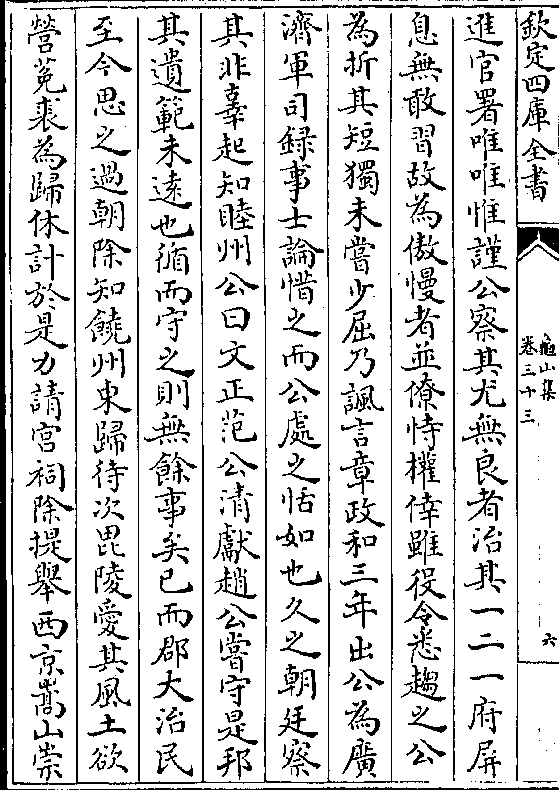 欽定四庫全書
龜山集
卷三十三
六
進官署唯唯惟謹公察其尤無良者治其一二一府屏
息無敢習故為傲慢者並僚恃權倖雖役令悉趨之公
為折其短獨未嘗少屈乃諷言章政和三年出公為廣
濟軍司録事士論惜之而公處之恬如也久之朝廷察
其非辜起知睦州公曰文正范公清獻趙公嘗守是邦
其遺範未逺也循而守之則無餘事矣已而郡大治民
至今思之過朝除知饒州東歸待次毘陵愛其風土欲
營菟裘為歸休計於是力請宮祠除提舉西京嵩山崇